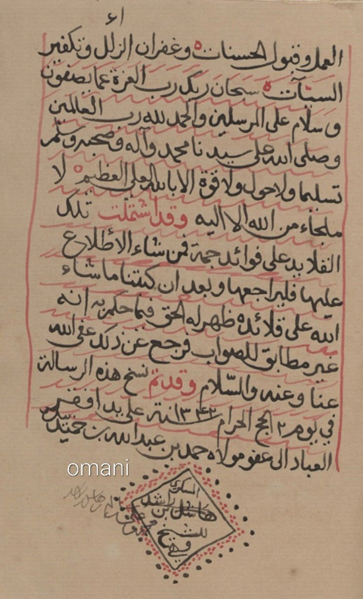 العمل وقبول الحسنات وغفران الزلل وتكفير
السيئات سبحان ربك رب العزة عما يصفون
وسلام على المرسلين والحمد لله رب العالمين
وصلى الله على سيدنا محمد وآله وصحبه وسلم
تسليما ولا حول ولا قوة الا بالله العلي العظيم لا
ملجاء من الله الا اليه وقد اشتملت تلك
القلايد على فوائد جمة فمن شاء الأطلاع
عليها فليراجعها وبعد ان كتبنا ما شاء
الله على قلائده ظهر له الحق فيما حكم به انه
غير مطابق للصواب فرجع عن ذلك عفى الله
عنا وعنه والسلام وقد تم نسخ هذه الرسالة
في يوم ٢ الحج الحرام ١٣٤٢ سنة على يد افقر
العباد الى عفو مولاه حمد بن عبدالله بن حميد
omani